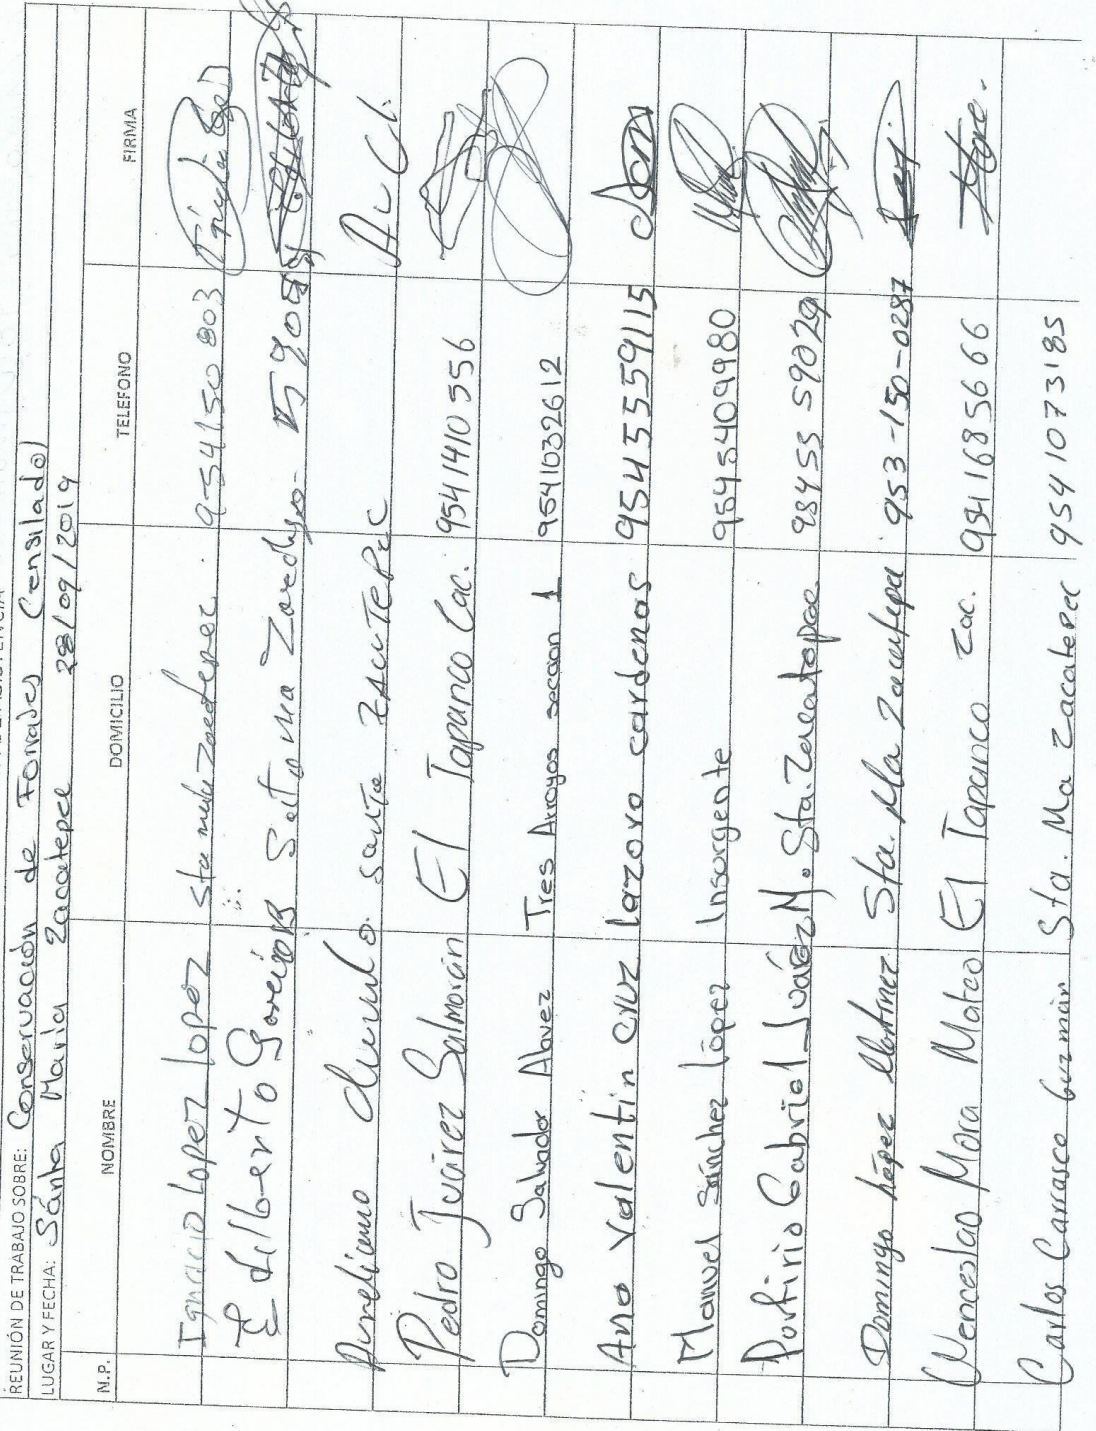 REUNIÓN DE TRABAJO SOBRE: Conservación de Forrajes (ensilado)
LUGAR Y FECHA: Santa María Zacatepec 28/09/2019
N.P. NOMBRE DOMICILIO TELEFONO FIRMA
Ignacio Lopez Lopez Sta maria Zacatepec.
Edilberto Santa ma
Aureliano santa Zacatepec
Pedro Juárez Salmorán El Tapanco Zac. 9541410556
Domingo Salvador Alavez Tres Arroyos seccion 1 9541032612
Ana Valentin cruz lazaro cardenas
Manuel Sánchez López Insurgente 9545409980
Porfirio Gabriel Juáez M. Sta. Zacatepec
Domingo López Martinez Sta. Ma Zacatepec 953-150-0287
Wenceslao Mora Mateo El Tapanco Zac.
Carlos Carrasco Guzmán Sta. Ma Zacatepec 9541073185